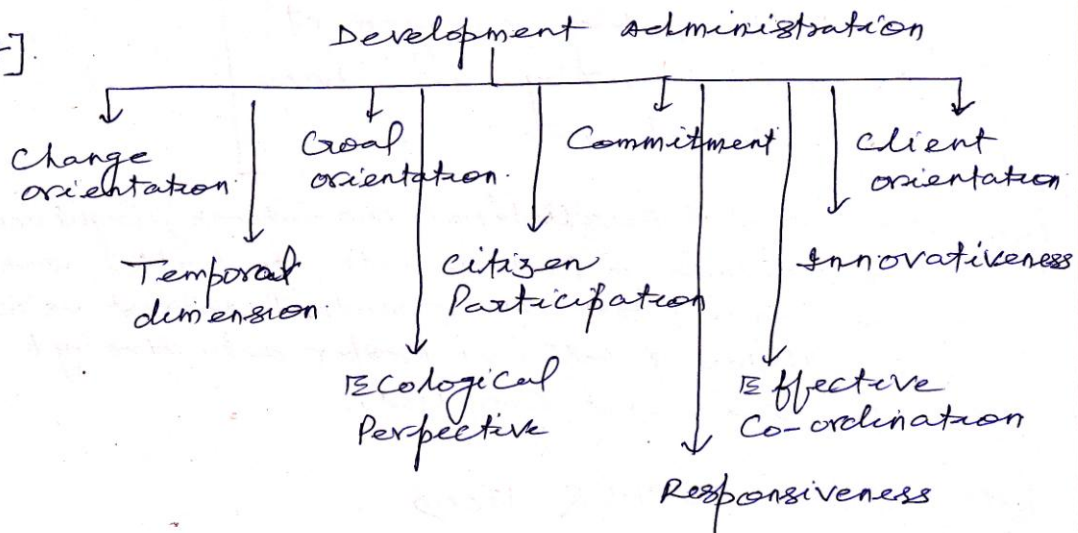 Development Administration
]
Change
orientation
Goal
orientation
Commitment
Client
orientation
Temporal
dimension
Citizen
Participation
Innovativeness
Ecological
Perpective
Effective
Co-ordination
Responsiveness